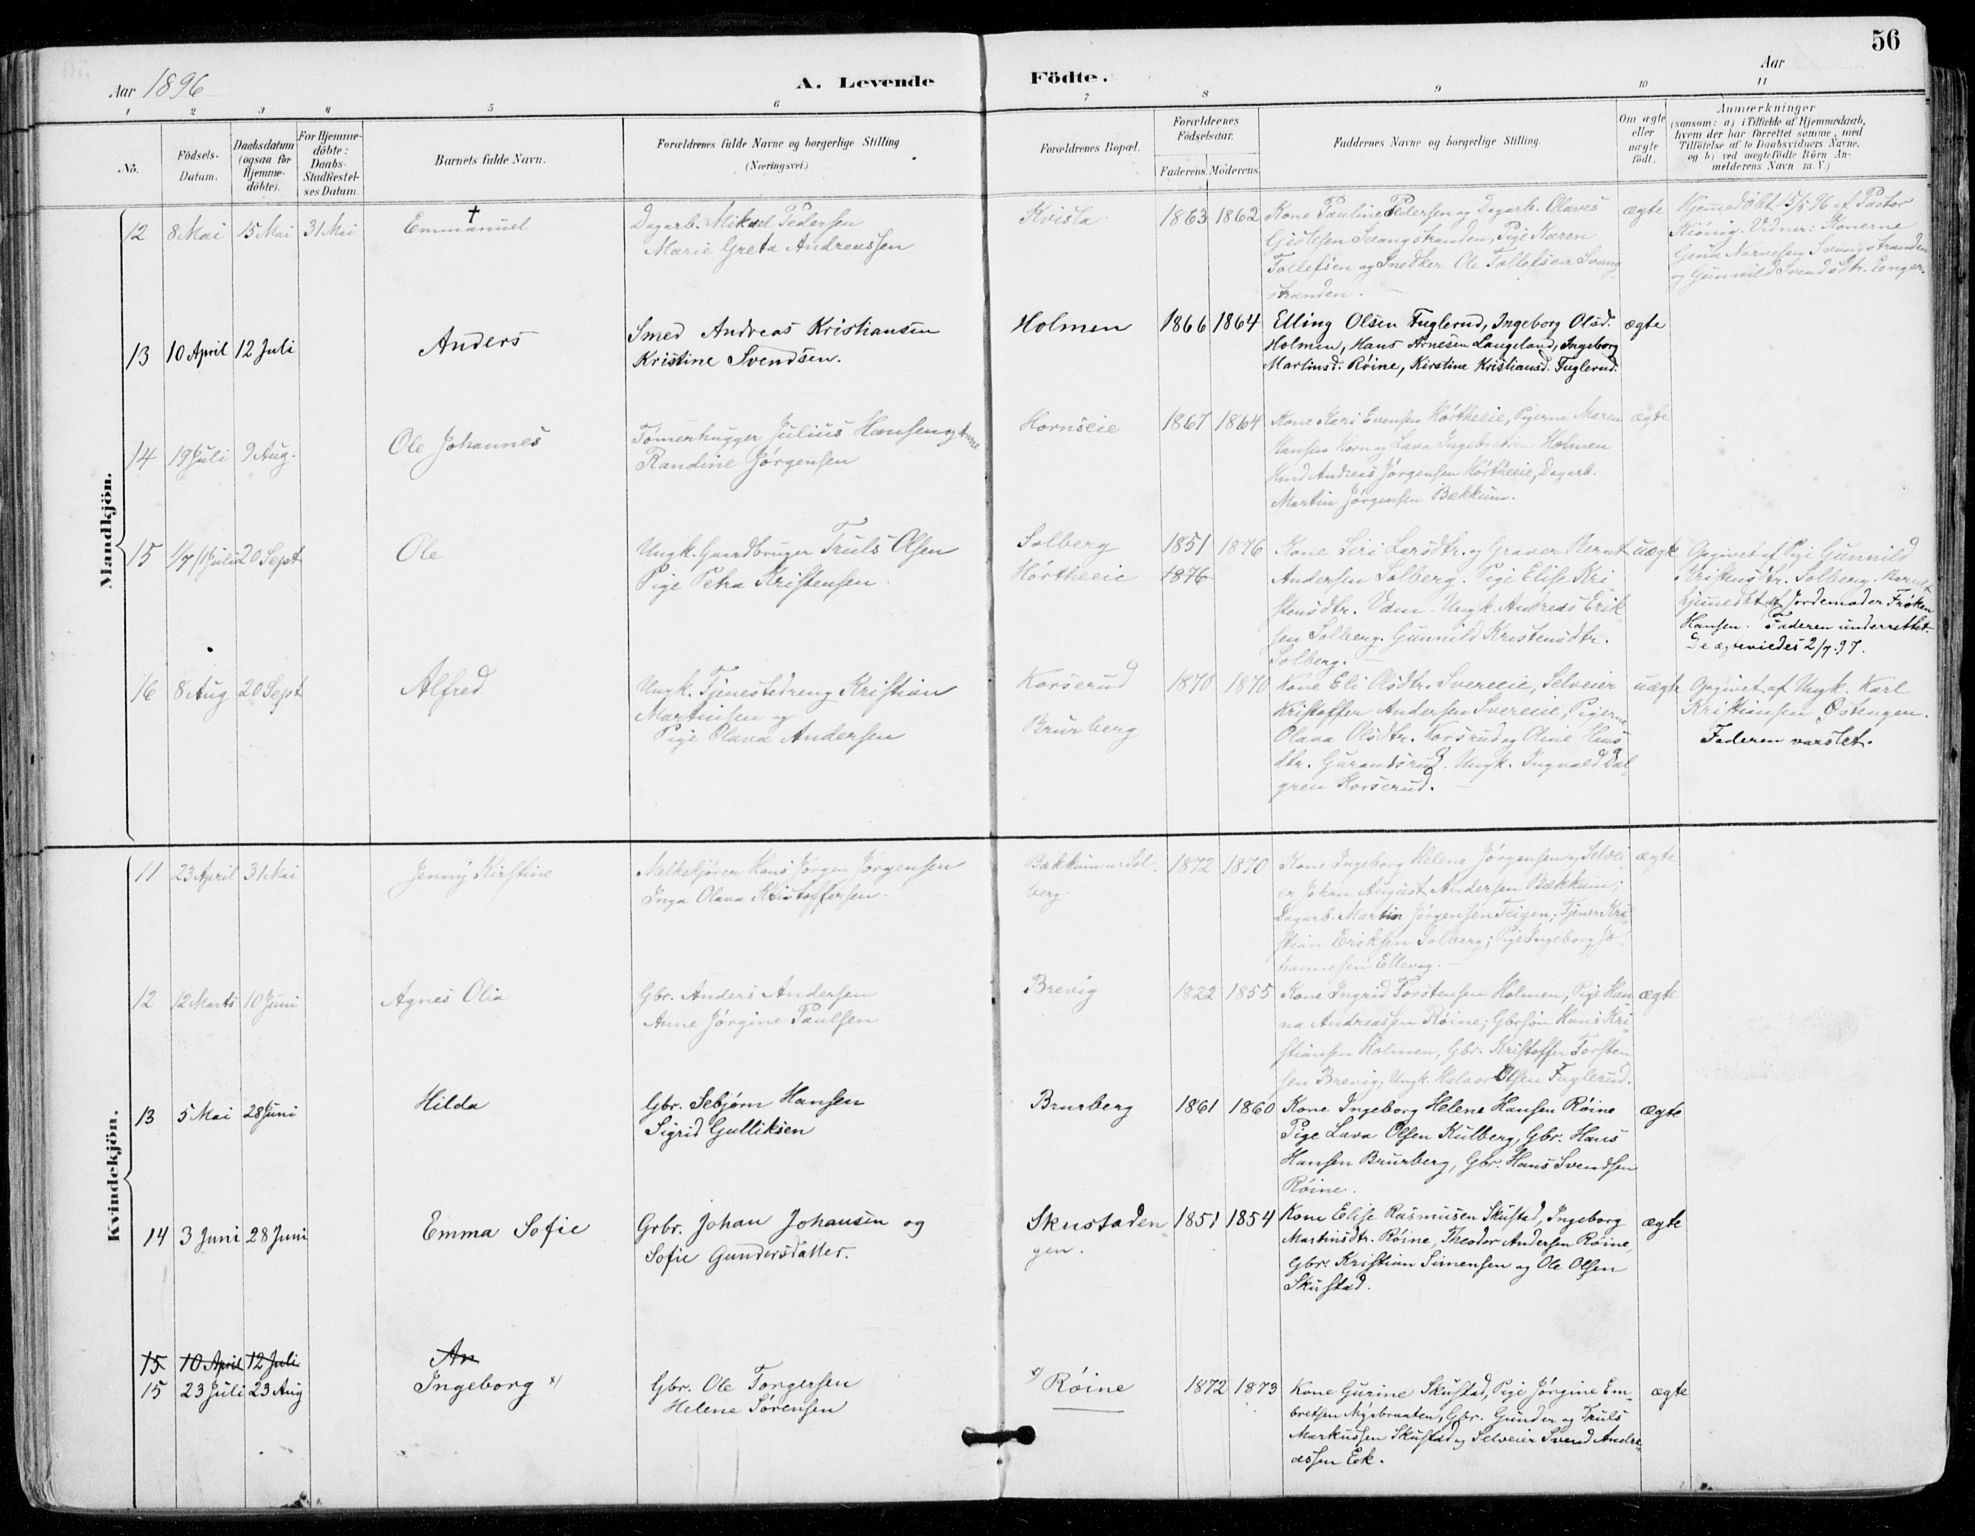 56
Aar 1896
A. Levende
Födte.
Aar
1 2 3 4 5 6 7 8 9 10 11
No.
Födsels-
Datum.
Daabsdatum
(ogsaa for
Hjemme-
döbte).
For Hjemme-
döbte:
Daabs-
Stadfæstel-
ses Datum.
Barnets fulde Navn.
Forældrenes fulde Navne og borgerlige Stilling
(Næringsvei.)
Forældrenes Bopæl.
Forældrenes
Födselsaar.
Faderens. Moderens.
Faddernes Navne og borgerlige Stilling.
Om ægte
eller
uægte
födt.
Anmærkninger
(saasom: a) i Tilfælde af Hjemmedaab,
hvem der har forrettet samme, med
Tilföielse af to Daabsvidners Navne,
og b) ved uægtefödte Börn An-
melderens Navn m. V.)
Mandkjön.
12 8 Mai 15 Mai 31 Mai
†
Emmanuel
Dagarb. Mikael Pedersen
Marie Greta Andreassen
Kvisla
1863 1862
Kone Pauline Pedersen og Dagarb. Olaves
Gislesen Svangstranden, Pige Karen
Tollefsen og Snedker Ole Tollefsen Svang
stranden.
ægte
Hjemmedøbt 15/5 96 af Pastor
Vidner: Konerne
Gena Narvesen Svangstranden
og Gunnild Svendsdtr. Enger.
13 10 April 12 Juli
Anders
Smed Andreas Kristiansen
Kristine Svendsen.
Holmen
1866 1864
Elling Olsen Fuglerud, Ingeborg Olsd.
Holmen, Hans Arnesen Langeland, Ingeborg
Martinsd. Røine, Kirstine Kristiansd. Fuglerud.
ægte
14 19 Juli 9 Aug.
Ole Johannes
Tømerhugger Julius Hansen og Kone
Randine Jørgensen
Hornseie
1867 1864
Kone Kari Evensen Hørtheeie, Pigerne Maren
Hansen Korn og Lava Ingebretsen Holmen
Andreas Jørgensen Hørtheeie, Dagarb.
Martin Jørgensen Bækkum.
ægte
15 20 Sept
Ole
Ungk. Gaardbruger Truls Olsen
Pige Petra Kristensen.
Solberg
Hørtheeie
1851 1876
1876
Kone Siri Larsdtr. og Graver Bernt
Andersen Solberg. Pige Elise Kri
stensdtr. Ungk. Andreas Erik
sen Solberg. Gunnild Kristensdtr.
Solberg.
uægte
Opgivet af Pige Gunnild
Kristensdtr. Solberg. Barnet
hjemmedøbt af Jordemoder Frøken
Hansen. Faderen underrettet.
De ægteviedes 2/7. 97.
16 8 Aug 20 Sept
Alfred
Ungk. Tjenestedreng Kristian
Martinsen og
Pige Olava Andersen
Korserud
Brurberg
1870 1870
Kone Eli Olsdtr. Svereeie, Selveier
Kristoffer Andersen Svereeie, Pigerne
Olava Olsdtr. Korsrud og Oline Hans
dtr. Gurandsrud. Ungk. Ingvald Dal
gren Korserud.
uægte
Opgivet af Ungk. Karl
Kristiansen Østengen.
Faderen varslet.
Kvindekjön.
11 23 April 31 Mai
Jenny Kirstine
Melkekjører Hans Jørgen Jørgensen
Inga Olava Kristoffersen.
Bækkum u: Sol-
berg.
1872 1870
Kone Ingeborg Helene Jørgensen og Selvei
er Johan August Andersen Bækkum;
Dagarb. Martin Jørgensen Teigen; Tjener Kri-
stian Eriksen Solberg; Pige Ingeborg Jo-
hannesen Ellevog.
ægte
12 12 Marts 10 Juni
Agnes Olia
Gbr. Anders Andersen
Anne Jørgine Paulsen
Brevig
1822 1855
Kone Ingrid Torstensen Holmen, Pige Han
na Andreassen Røine; Gbrsøn Hans Kri-
stiansen Holmen, Gbr. Kristoffer Torsten
sen Brevig; Ungk. Halvor Olsen Fuglerud.
ægte
13 5 Mai 28 Juni
Hilda
Gbr. Sebjørn Hansen
Sigrid Gulliksen
Brurberg
1861 1860
Kone Ingeborg Helene Hansen Røine
Pige Lava Olsen Kulberg, Gbr. Hans
Hansen Brurberg, Gbr. Hans Svendsen
Røine.
ægte
14 3 Juni 28 Juni
Emma Sofie
Grbr. Johan Johansen og
Sofie Gundersdatter.
Skustaden
gen.
1851 1854
Kone Elise Rasmusen Skustad, Ingeborg
Martinsdtr. Røine, Theodor Andersen Røine,
Gbr. Kristian Simensen og Ole Olsen
Skustad.
ægte
15 10 April 12 Juli
An
15 23 Juli 23 Aug
Ingeborg x)
Gbr. Ole Torgersen
Helene Sørensen
x) Røine
1872 1873
Kone Gurine Skustad, Pige Jørgine Em-
bretsen Myrbraaten, Gbr. Gunder og Truls
Markussen Skustad og Selveier Svend Andre-
assen Eek.
ægte